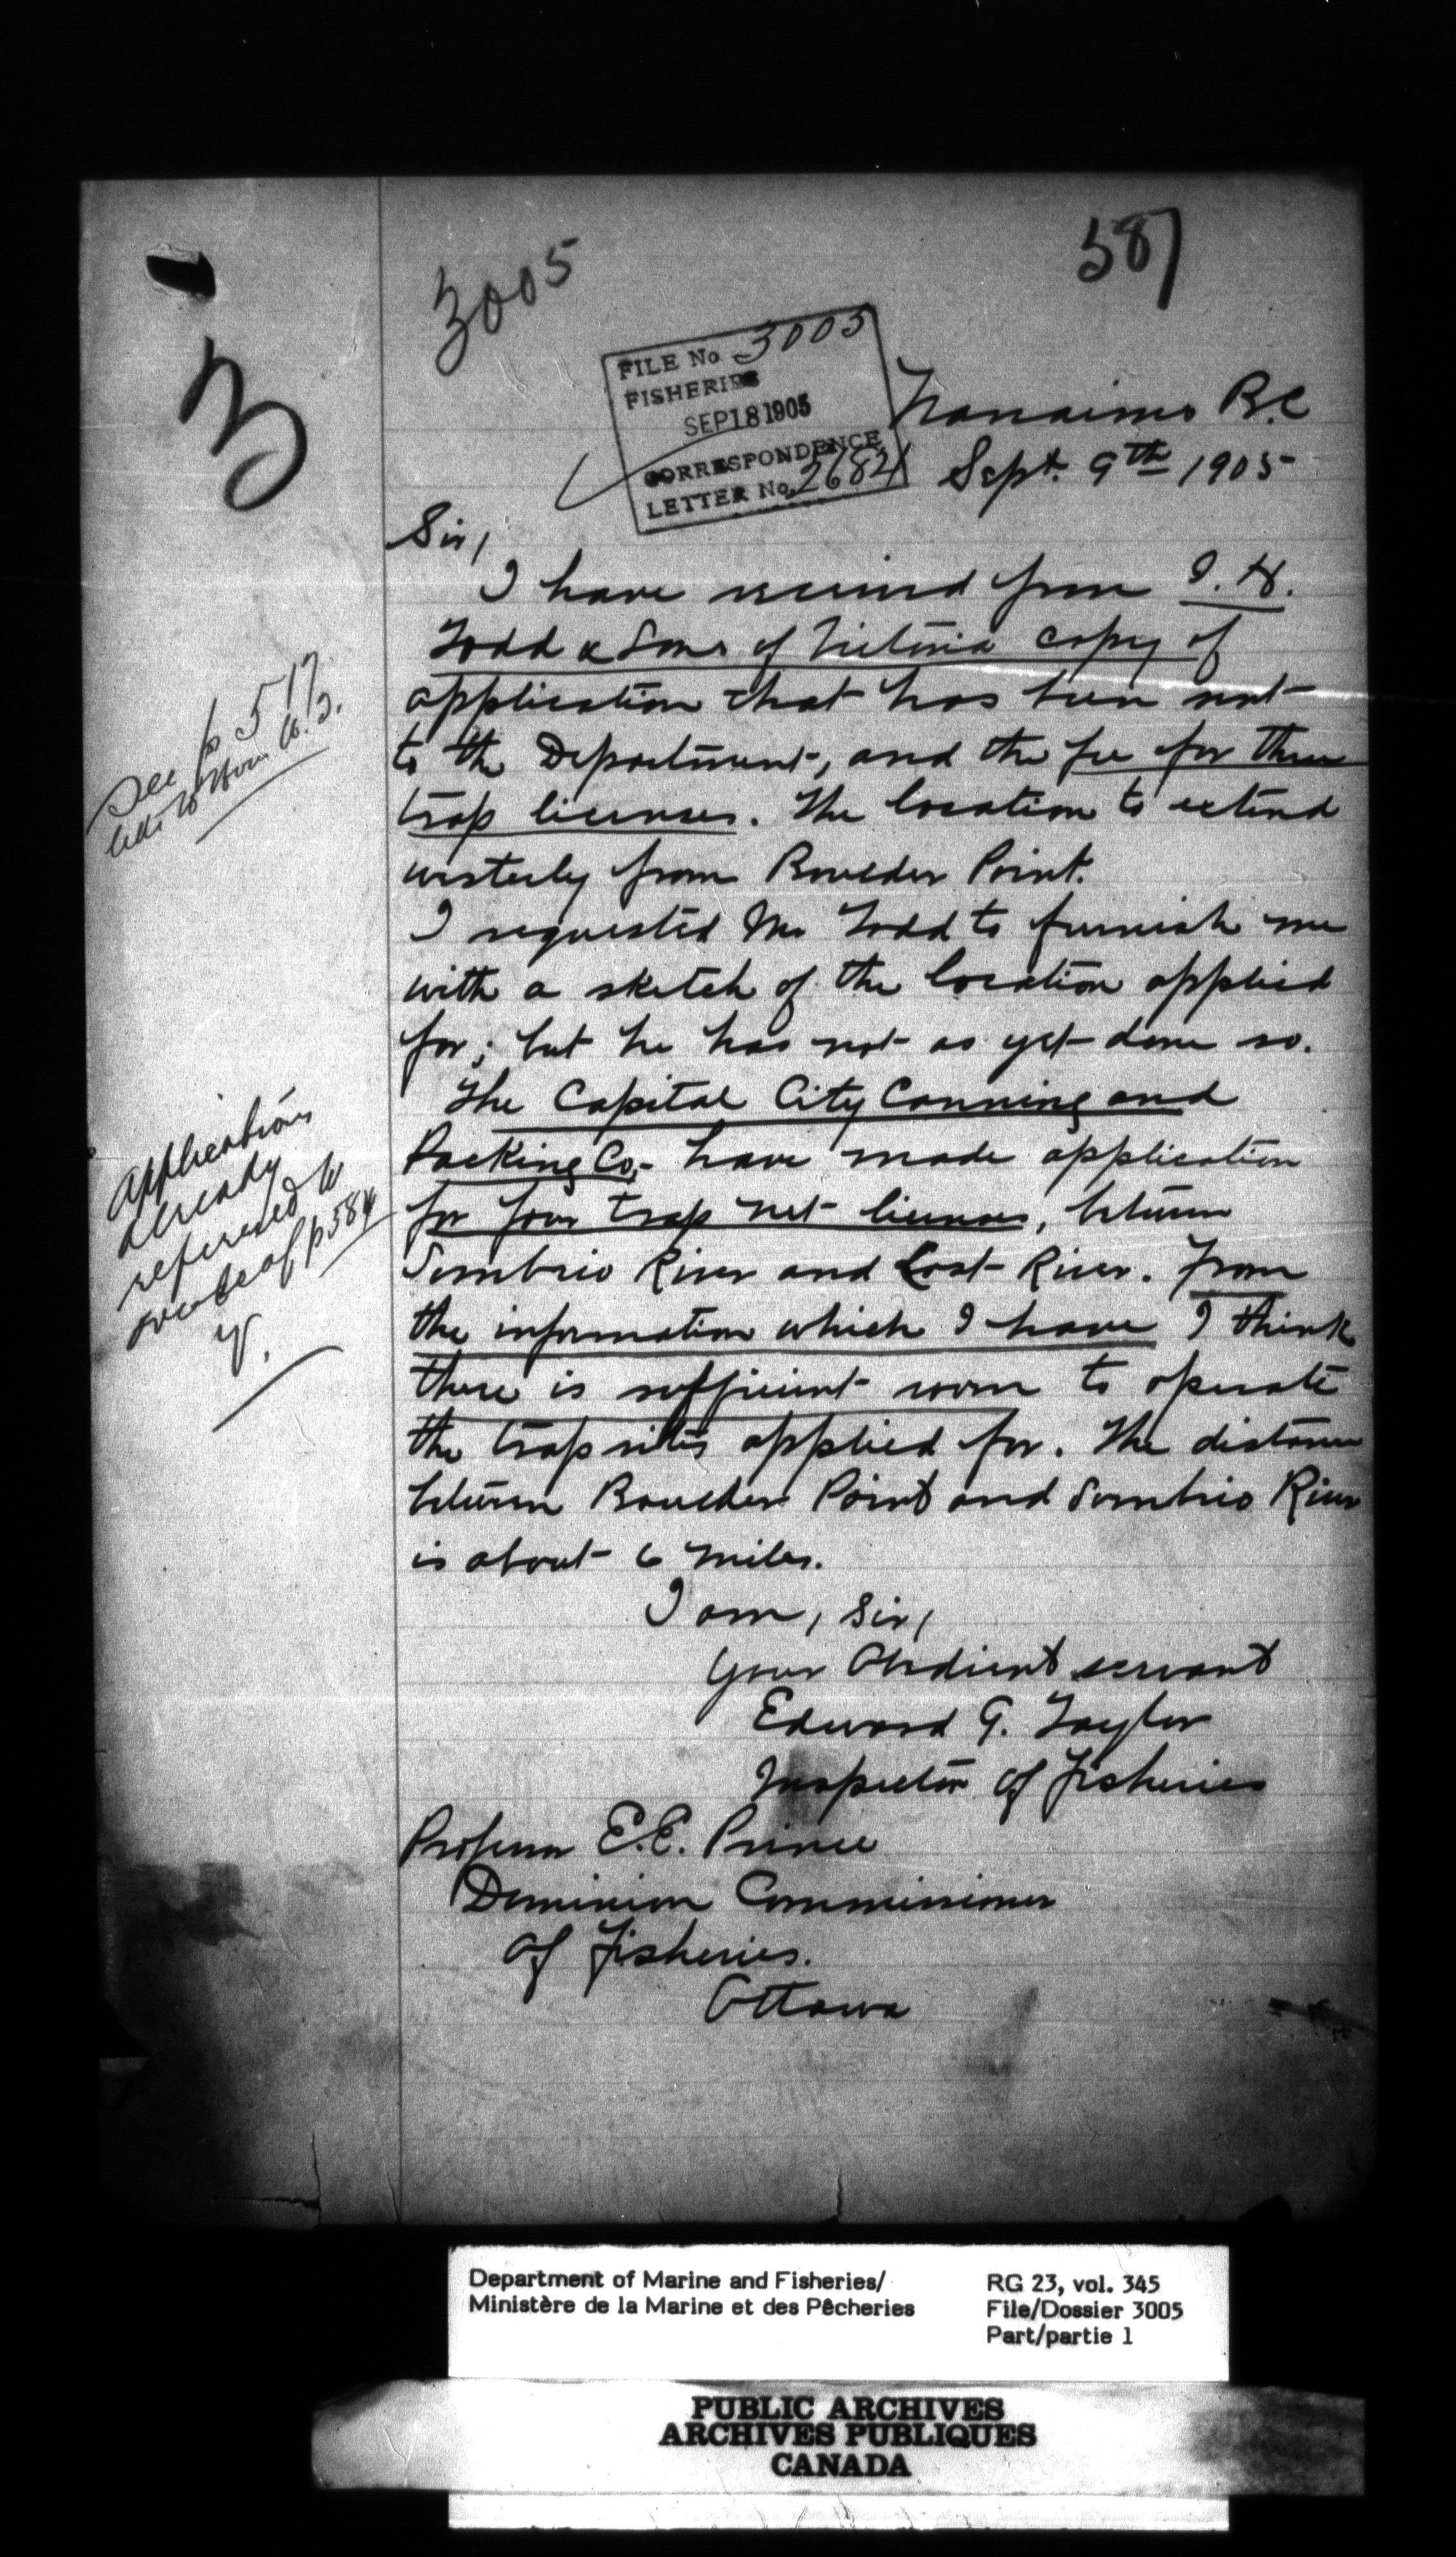 3005
587
FILE No 3005
FISHERIES
SEP 18 1905
CORRESPONDENCE
LETTER No. 2682
3
Nanaimo B.C
Sept. 9th 1905
Sir,
I have received from J. H.
Todd & Sons of Victoria copy of
application that has been sent
to the Department, and the fee for three
trap licenses. The location to extend
westerly from Boulder Point.
I requested Mr Todd to furnish me
with a sketch of the location applied
for; but he has not as yet done so.
The Capital City Canning and
Packing Co. have made application
for four trap net licenses, between
Sombrio River and Lost River. From
the information which I have I think
there is sufficient room to operate
the trap sites applied for. The distance
between Boulder Point and Sombrio River
is about 6 miles.
I am, Sir,
Your Obedient servant
Edward G. Taylor
Inspector of Fisheries
Professor E.E. Prince
Dominion Commissioner
of Fisheries.
Ottawa
See p 517
letter to
applications
already
referred to
p 584
Department of Marine and Fisheries/
Ministère de la Marine et des Pêcheries
RG 23, vol. 345
File/Dossier 3005
Part/partie 1
PUBLIC ARCHIVES
ARCHIVES PUBLIQUES
CANADA